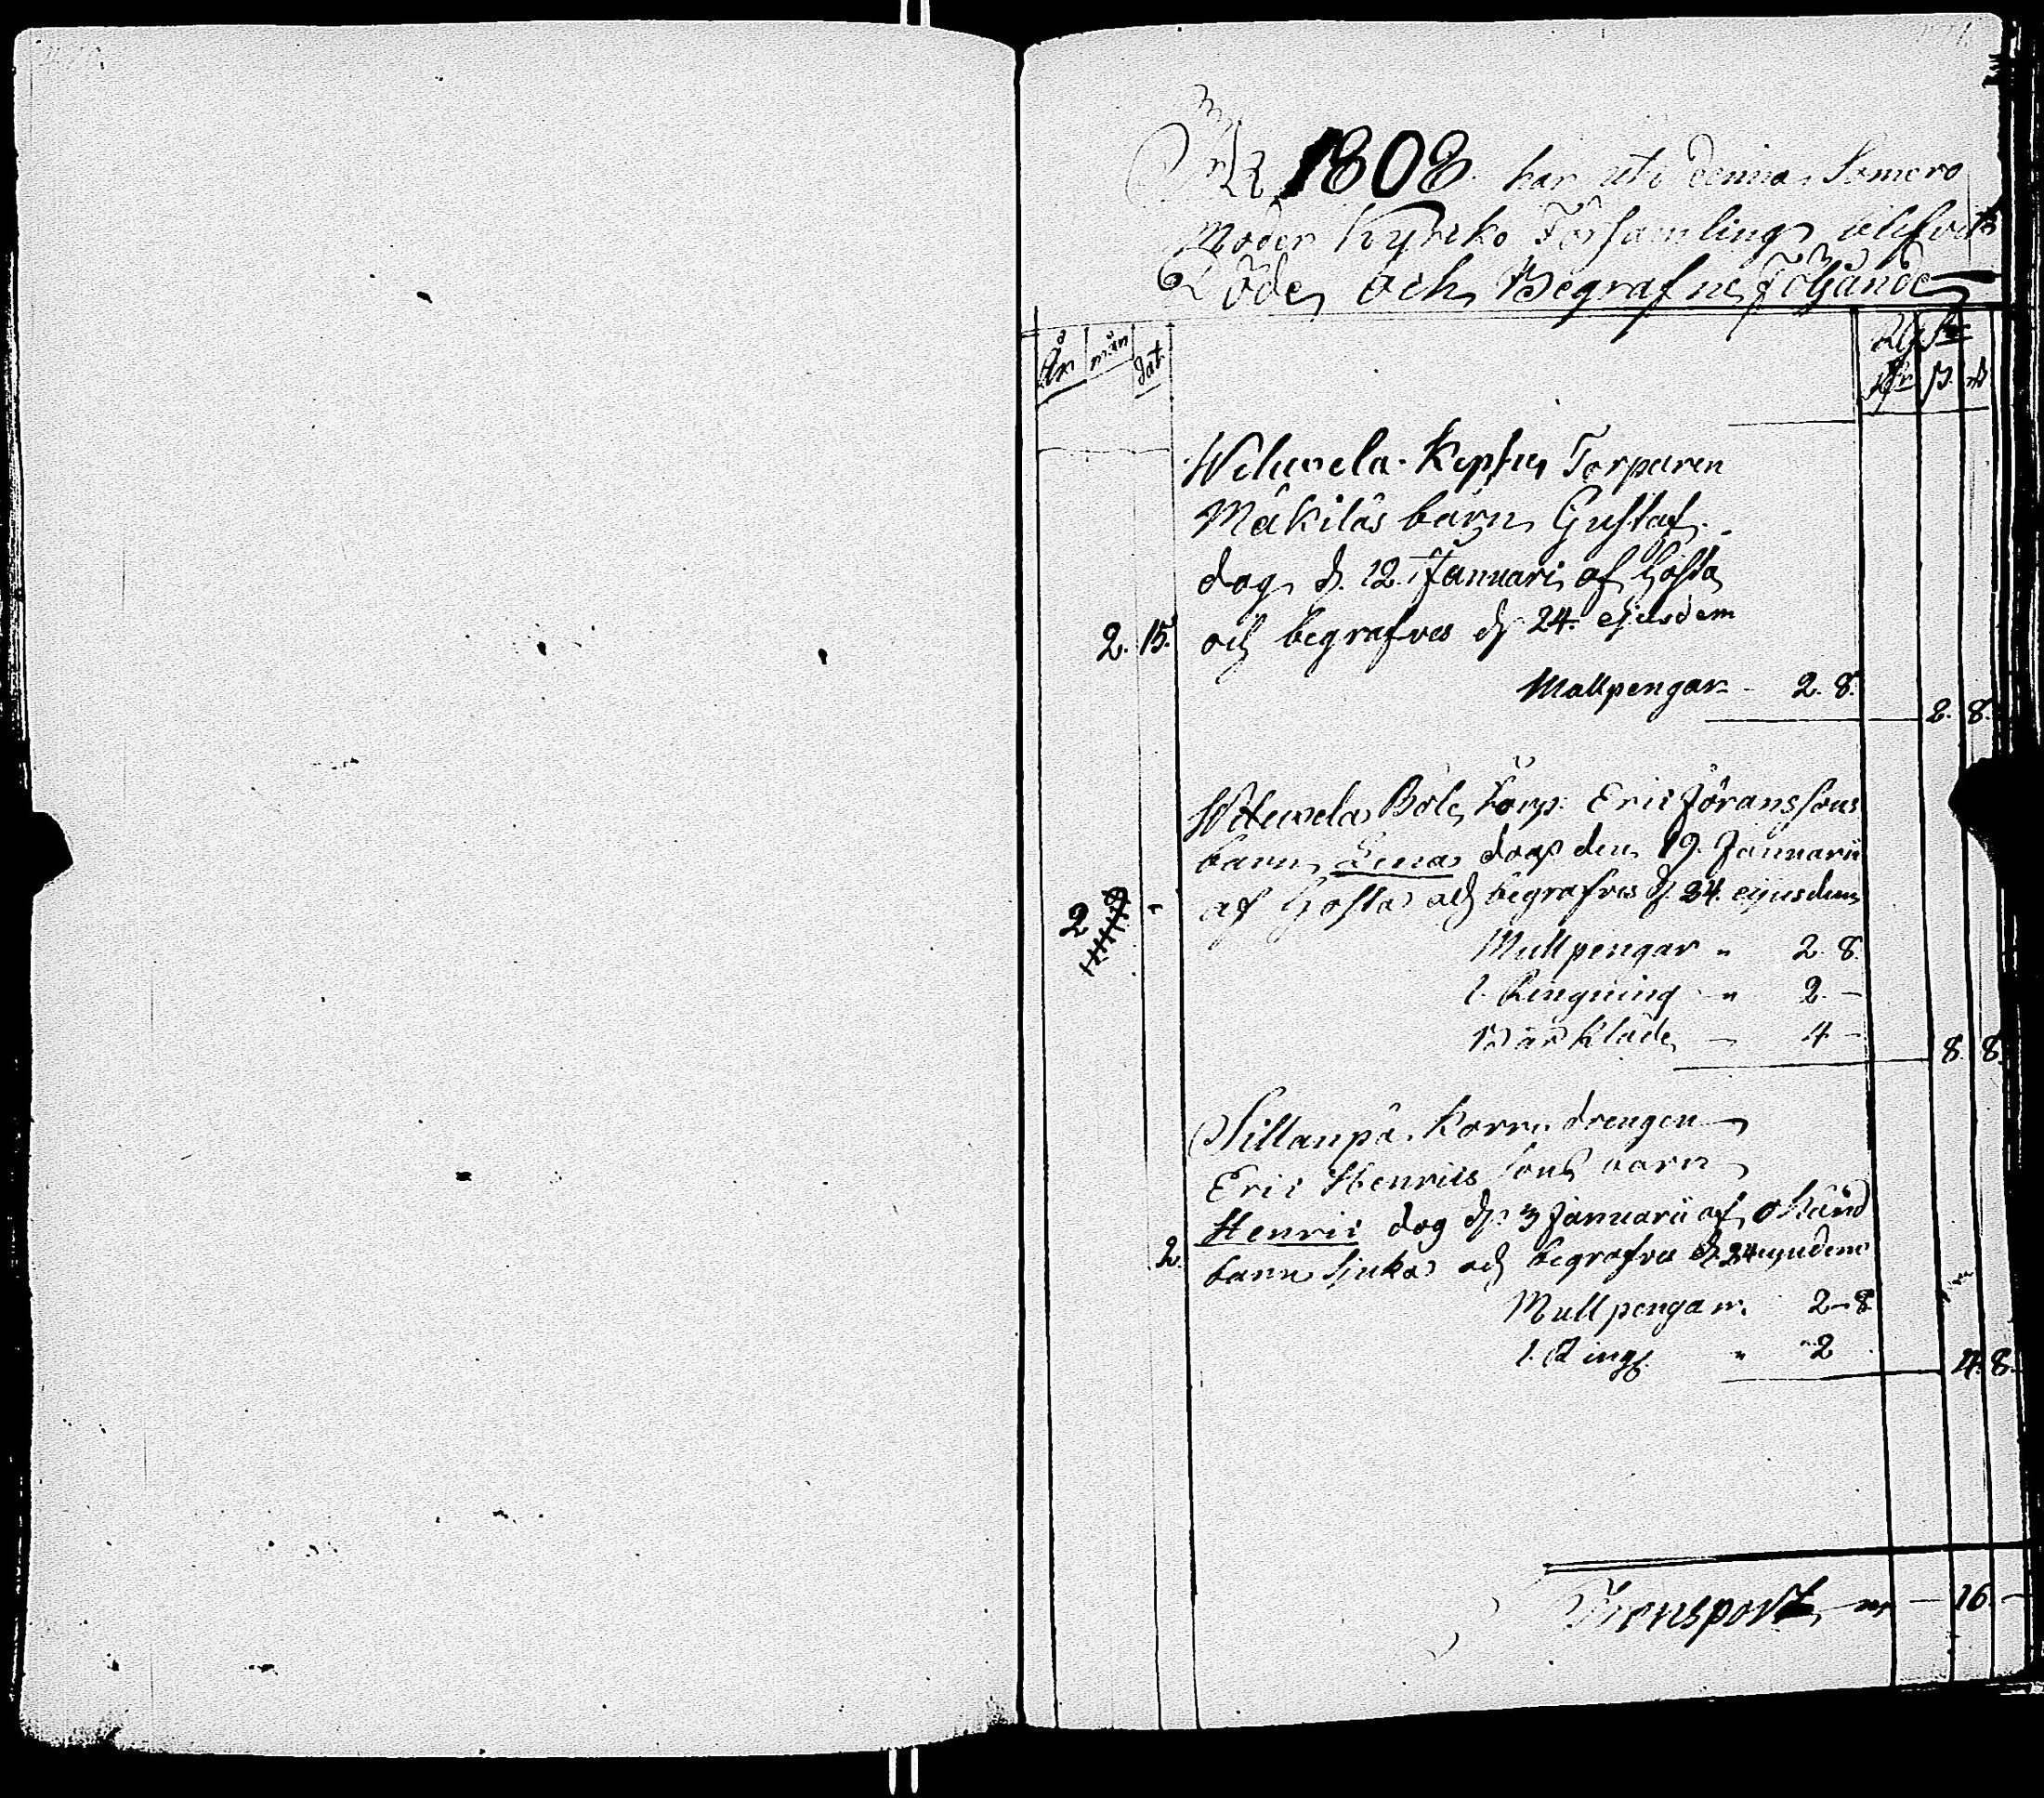 År 1808. har uti denna Somero
Moder Kyrko Församling blifvit
Döde och Begrafne följande
År mån dat
Rg S:r
Rdr ß. rs
Wiluvela. Kepsu, Torparen
Mäkiläs barn Gustaf
dog d. 12 Januari af hosta
2. 15. och begrafves d. 24. ejusdem
Mullpengar - 2. 8.
2. 8.
Wiluvela Böle, torp. Eric Jöranssons
barn Lena dog den 19. Januarii
2 - af hosta och begrafves d. 24. ejusdem
Mullpengar " 2. 8.
1. Ringning " 2. -
Bårkläde - 4 -
8. 8.
Sillanpä. Korru drengen
Eric Henrics sons barn
Henric dog d. 3 Januarii af okänd
2. barn sjuka och begrafves d. 24 ejusdem
Mullpengar. 2-8
1. Ring " 2
4. 8.
Transport - 16. -